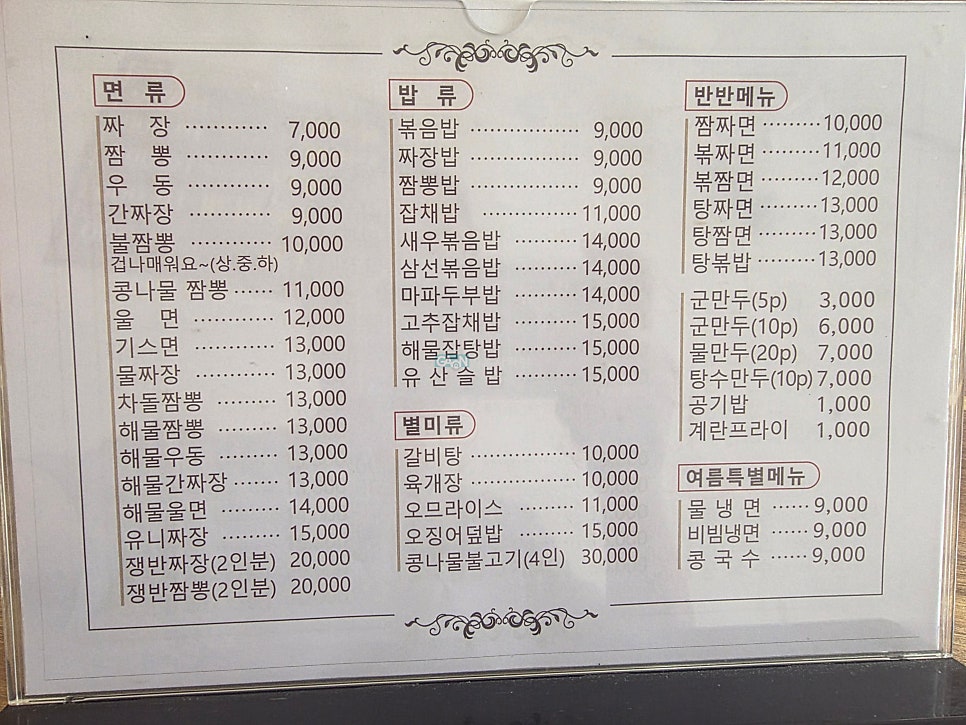 면 류
짜 장 ············ 7,000
짬 뽕 ············ 9,000
우 동 ············ 9,000
간짜장 ············ 9,000
불짬뽕 ············ 10,000
겁나매워요~(상.중.하)
콩나물 짬뽕 ······ 11,000
울 면 ············ 12,000
기스면 ············ 13,000
물짜장 ············ 13,000
차돌짬뽕 ········· 13,000
해물짬뽕 ········· 13,000
해물우동 ········· 13,000
해물간짜장 ······· 13,000
해물울면 ········· 14,000
유니짜장 ········· 15,000
쟁반짜장(2인분) 20,000
쟁반짬뽕(2인분) 20,000
밥 류
볶음밥 ················ 9,000
짜장밥 ················ 9,000
짬뽕밥 ················ 9,000
잡채밥 ·············· 11,000
새우볶음밥 ·········· 14,000
삼선볶음밥 ·········· 14,000
마파두부밥 ·········· 14,000
고추잡채밥 ·········· 15,000
해물잡탕밥 ·········· 15,000
유 산 슬 밥 ·········· 15,000
별미류
갈비탕 ··············· 10,000
육개장 ··············· 10,000
오므라이스 ········· 11,000
오징어덮밥 ········· 15,000
콩나물불고기(4인) 30,000
반반메뉴
짬짜면 ········· 10,000
볶짜면 ········· 11,000
볶짬면 ········· 12,000
탕짜면 ········· 13,000
탕짬면 ········· 13,000
탕볶밥 ········· 13,000
군만두(5p) 3,000
군만두(10p) 6,000
물만두(20p) 7,000
탕수만두(10p) 7,000
공기밥 1,000
계란프라이 1,000
여름특별메뉴
물 냉 면 ······ 9,000
비빔냉면 ······ 9,000
콩 국 수 ······ 9,000